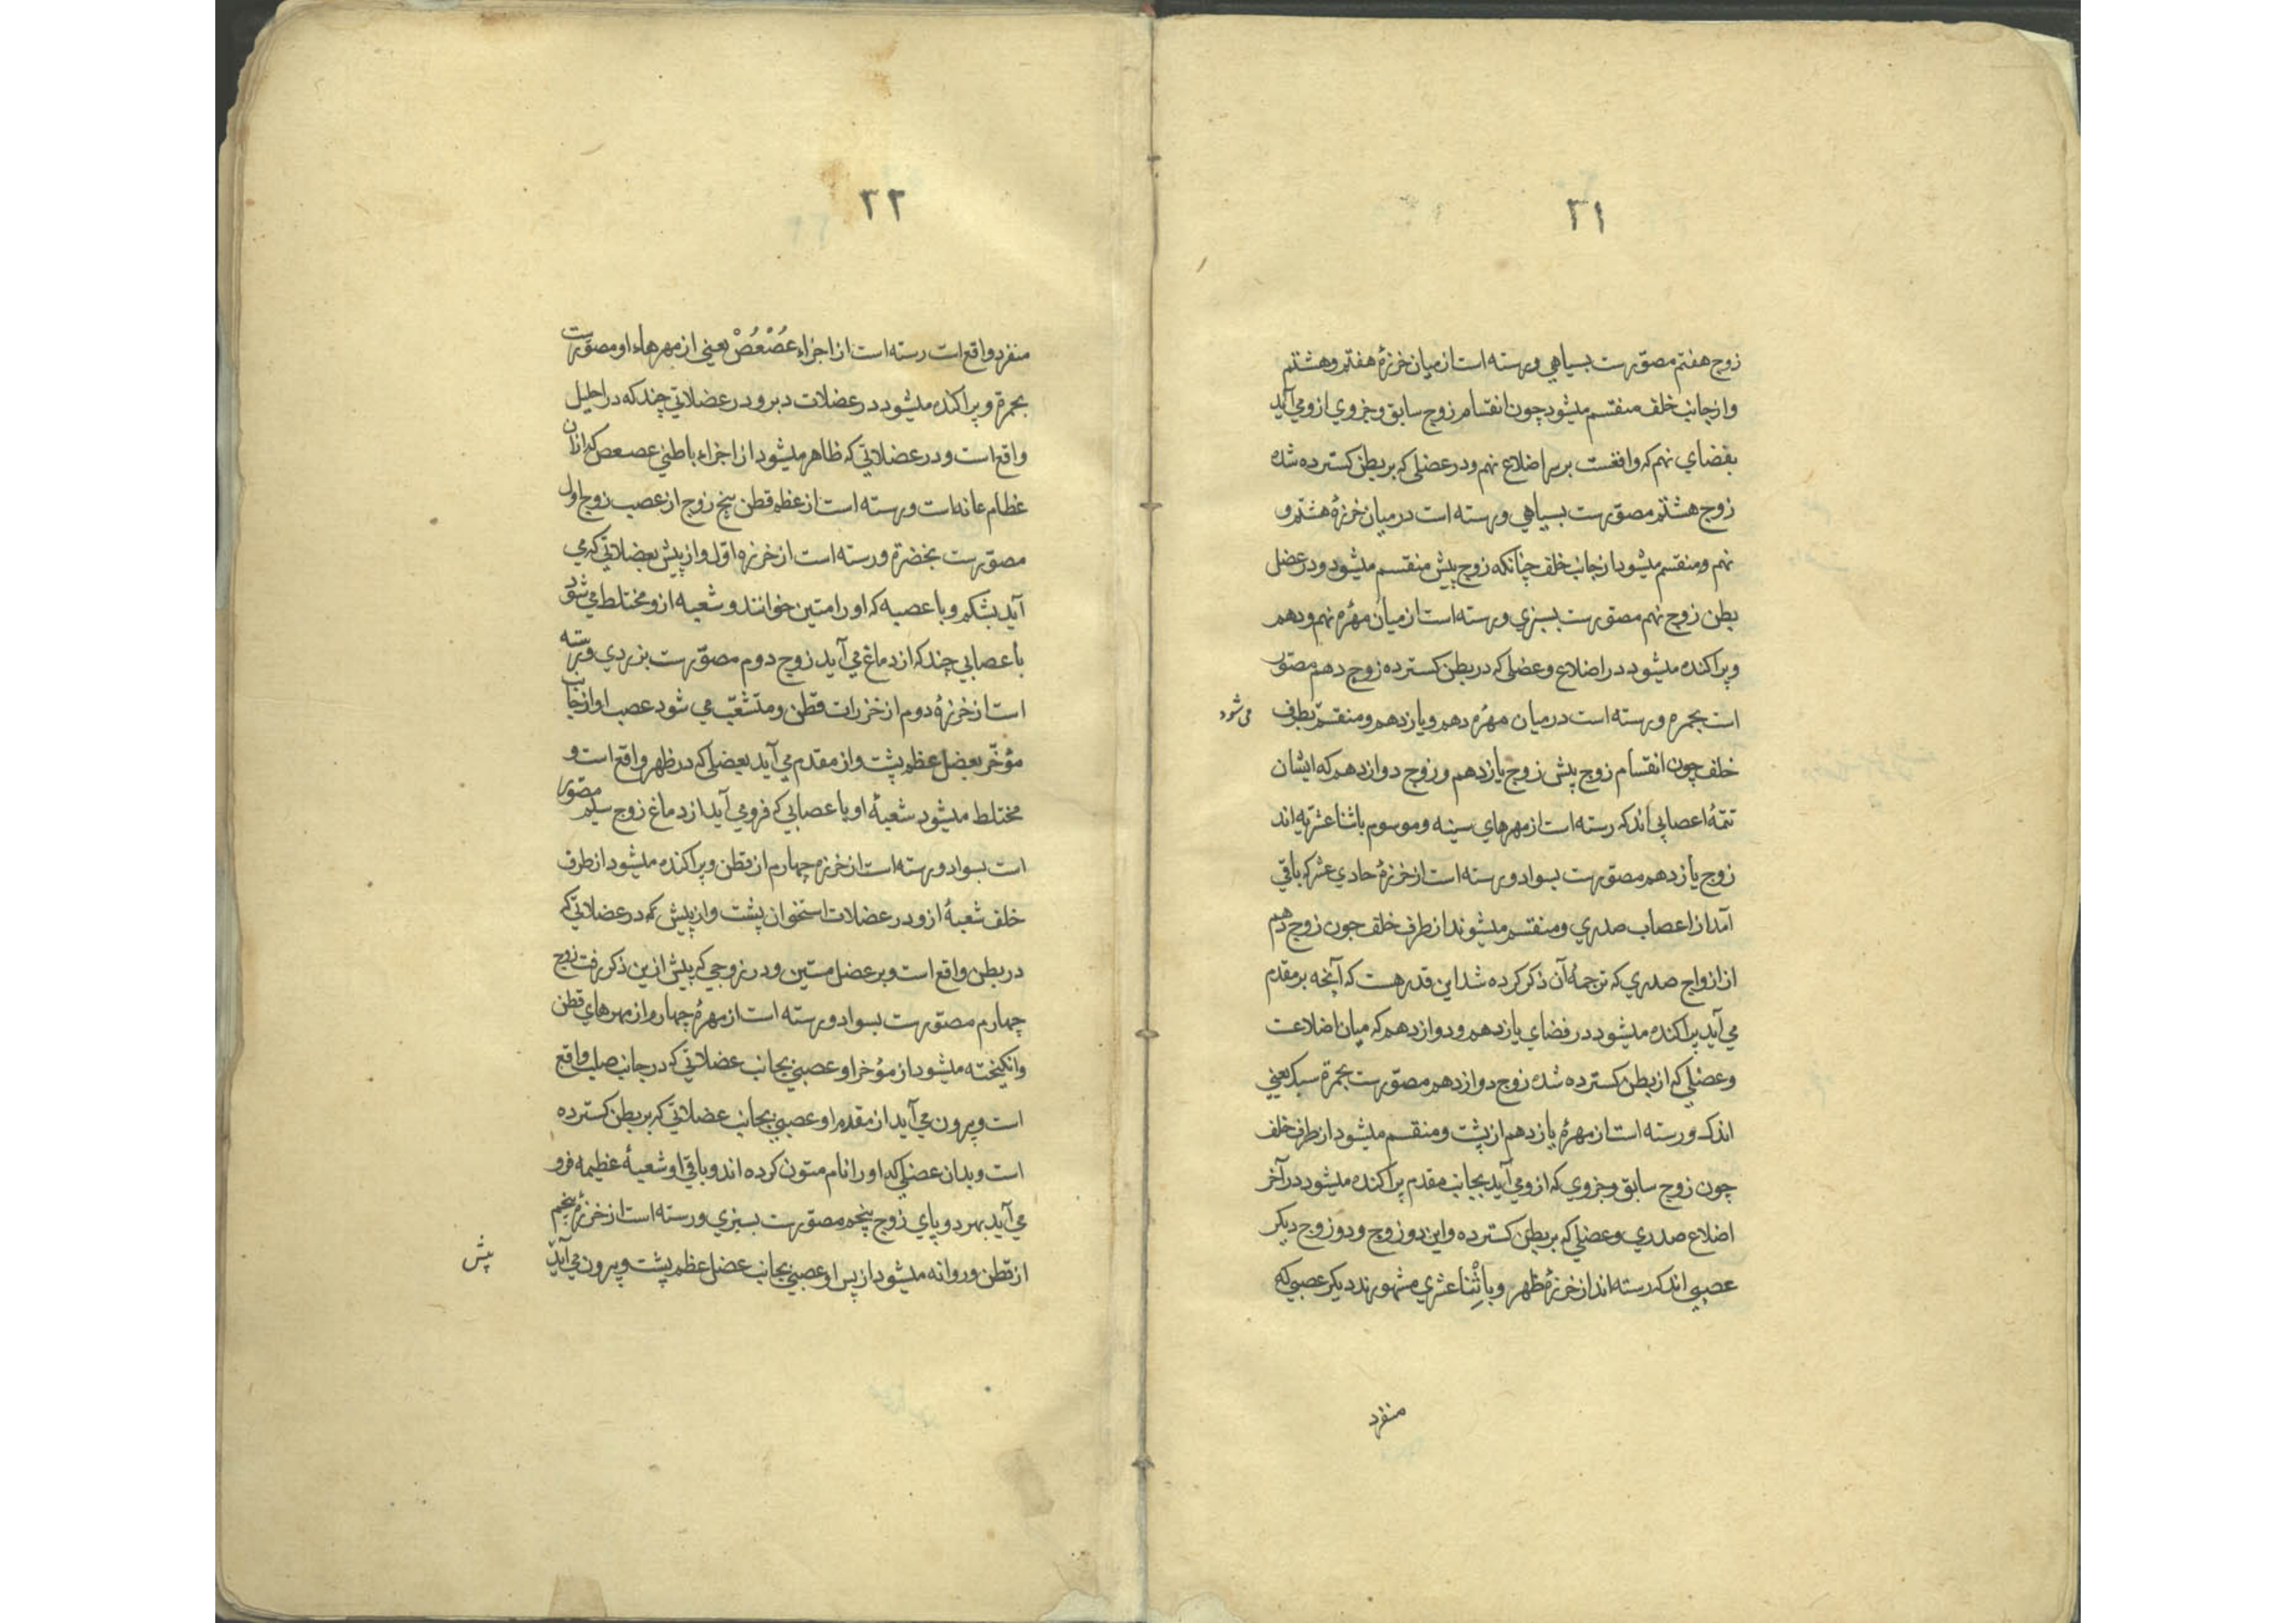 ۳۱
زوج هفتم مصوّرست بسیاهی ورسته است از میان خرزهٔ هفتم وهشتم
واز جانب خلف منقسم میشود چون انقسام زوج سابق وجزوی ازو می آید
بفضای نهم که واقعست بر سر اضلاع نهم ودر عضلی که بر بطن کسترده شده
زوج هشتم مصوّرست بسیاهی ورسته است در میان خرزهٔ هشتم و
نهم ومنقسم میشود از جانب خلف چنانکه زوج پیش منقسم میشود ودر عضل
بطن زوج نهم مصوّرست بسبزی ورسته است از میان مهرهٔ نهم ودهم
وپراکنده میشود در اضلاع وعضلی که در بطن کسترده زوج دهم مصوّر
است بحمره ورسته است در میان مهرهٔ دهم ویازدهم ومنقسم بطرف می شود
خلف چون انقسام زوج پیش زوج یازدهم وزوج دوازدهم که ایشان
تتمهٔ اعصابی اند که رسته است از مهرهای سینه وموسوم باثنا عشریه اند
زوج یازدهم مصوّرست بسواد ورسته است از خرزهٔ حادی عشر که باقی
آمد از اعصاب صدری ومنقسم میشوند از طرف خلف جون زوج دهم
از ازواج صدری که ترجمهٔ آن ذکر کرده شد این قدر هست که آنچه بر مقدم
می آید پراکنده میشود در فضای یازدهم ودوازدهم که میان اضلاعت
وعضلی که از بطن کسترده شده زوج دوازدهم مصوّرست بحمرة سبک یعنی
اندک ورسته است از مهرهٔ یازدهم از پشت ومنقسم میشود از طرف خلف
چون زوج سابق وجزوی که ازو می آید بجانب مقدم پراکنده میشود در آخر
اضلاع صدری وعضلی که بر بطن کسترده واین دو زوج ودو زوج دیکر
عصبی اند که رسته اند از خرزهٔ ظهر وباثْنا عشری مشهورند دیکر عصبی که
منفرد
۳۲
منفرد واقع است رسته است از اجزاء عُصْعُصْ یعنی از مهرهاء او مصوّرست
بحمرة وپراکنده میشود در عضلات دبر ودر عضلاتی چند که در احلیل
واقع است ودر عضلاتی که ظاهر میشود از اجزاء باطنی عصعص که ازان
عظام عانه است ورسته است از عظم قطن پنج زوج از عصب زوج اول
مصوّرست بخضرة ورسته است از خرزه اوّل واز پیش بعضلاتی که می
آید بشکم وبا عصبه که اورا متین خوانند وشعبه ازو مختلط می شود
با عصابی چند که از دماغ می آید زوج دوم مصوّرست بزردی وبررسته
است از خرزهٔ دوم از خزرات قطن ومتشعّب می شود عصب او از جانب
مؤخّر بعضل عظم پشت واز مقدم می آید بعضلی که در ظهر واقع است و
مختلط میشود شعبهٔ او با عصابی که فرو می آید از دماغ زوج سیم مصوّر
است بسواد ورسته است از خرزه چهارم از قطن وپراکنده میشود از طرف
خلف شعبهٔ ازو در عضلات استخوان پشت واز پیش که در عضلاتی که
در بطن واقع است وبر عضل متین ودر زوجی که پیش ازین ذکر رفت زوج
چهارم مصوّرست بسواد ورسته است از مهرهٔ چهارم از مهرهای قطن
وانکیخته میشود از مؤخر او عصبی بجانب عضلاتی که در جانب صلب واقع
است وبیرون می آید از مقدم او عصبی بجانب عضلاتی که بر بطن کسترده
است وبدان عضلی که اورا نام متون کرده اند وباقی او شعبهٔ عظیمه فرو
می آید بهر دو پای زوج پنجم مصوّرست بسبزی ورسته است از خرزهٔ پنجم
از قطن وروانه میشود از پس او عصبی بجانب عضل عظم پشت وبیرون می آید
پیش